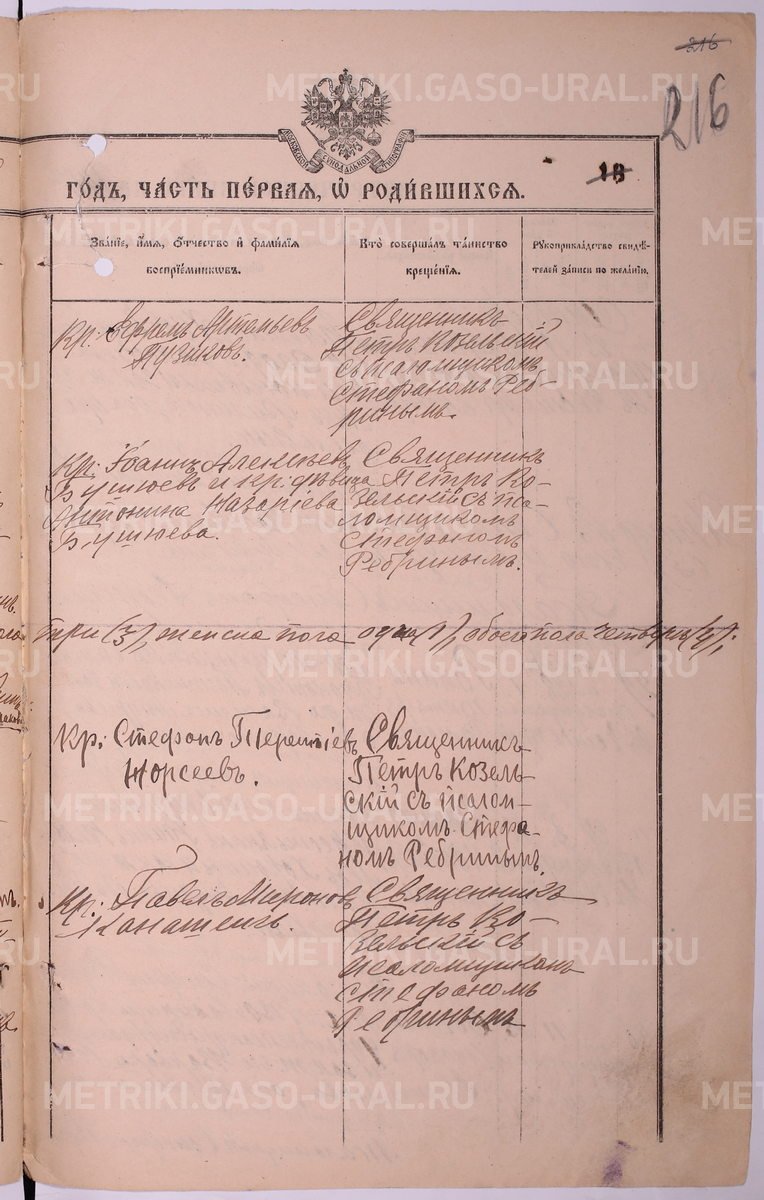 216
216
МОСКОВСКОЙ СѴНОДАЛЬНОЙ ТИПОГРАФІИ
18
ГО́ДЪ, ЧА́СТЬ ПЕ́РВАѦ, Ѽ РОДИ́ВШИХСѦ.
Зва́нїе, и҆́мѧ, ѻ҆́тчество и҆ фами́лїѧ
воспрїе́мникѡвъ.
Кто̀ соверша́лъ та́инство
креще́нїѧ.
Рꙋкоприкла́дство свидѣ́-
телей за́писи по жела́нїю.
Кр: Ефремъ Артемьевъ
Пузиковъ.
Священникъ
Петръ Козельскій
съ псаломщикомъ
Стефаномъ Реб-
ринымъ.
Кр: Іоаннъ Алексѣевъ
и кр. дѣвица
Антонина Назаріева
Священникъ
Петръ Ко-
зельскій съ пса-
ломщикомъ
Стефаномъ
Ребринымъ.
три (3), женска пола одна (1), обоего пола четверо (4);
Кр: Стефанъ Терентіевъ
Норсеевъ.
Священникъ
Петръ Козель-
скій съ псалом-
щикомъ Стефа-
номъ Ребринымъ.
Кр: Павелъ Мироновъ
Священникъ
Петръ Ко-
зельскій съ
псаломщикомъ
Стефаномъ
Ребринымъ
METRIKI.GASO-URAL.RU